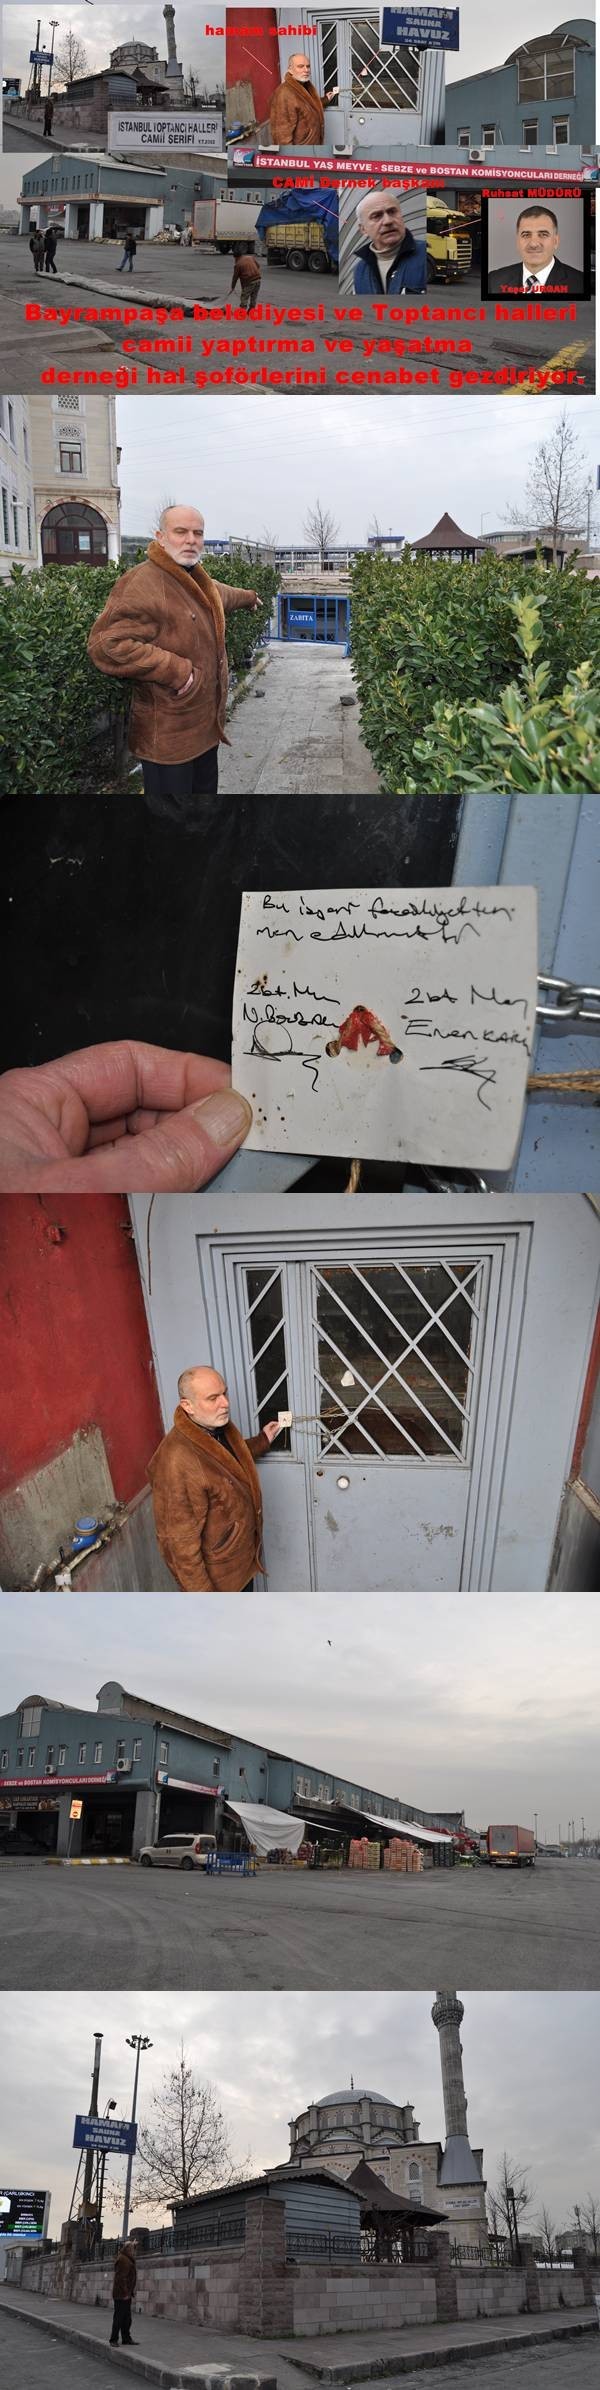 hamam sahibi
HAMAM
SAUNA
HAVUZ
24 SAAT AÇIK
HAMAM
SAUNA
HAVUZ
İSTANBUL TOPTANCI HALLERİ
CAMİİ ŞERİFİ Y.T.2002
İSTANBUL YAŞ MEYVE - SEBZE ve BOSTAN KOMİSYONCULARI DERNEĞİ
CAMİ Dernek başkanı
Ruhsat MÜDÜRÜ
Yaşar URGAN
Bayrampaşa belediyesi ve Toptancı halleri
camii yaptırma ve yaşatma
derneği hal şoförlerini cenabet gezdiriyor.
ZABITA
Bu işyeri faaliyetten
men edilmiştir
Zbt. Mm
Zbt Mm
SEBZE ve BOSTAN KOMİSYONCULARI DERNEĞİ
HAMAM
SAUNA
HAVUZ
24 SAAT AÇIK